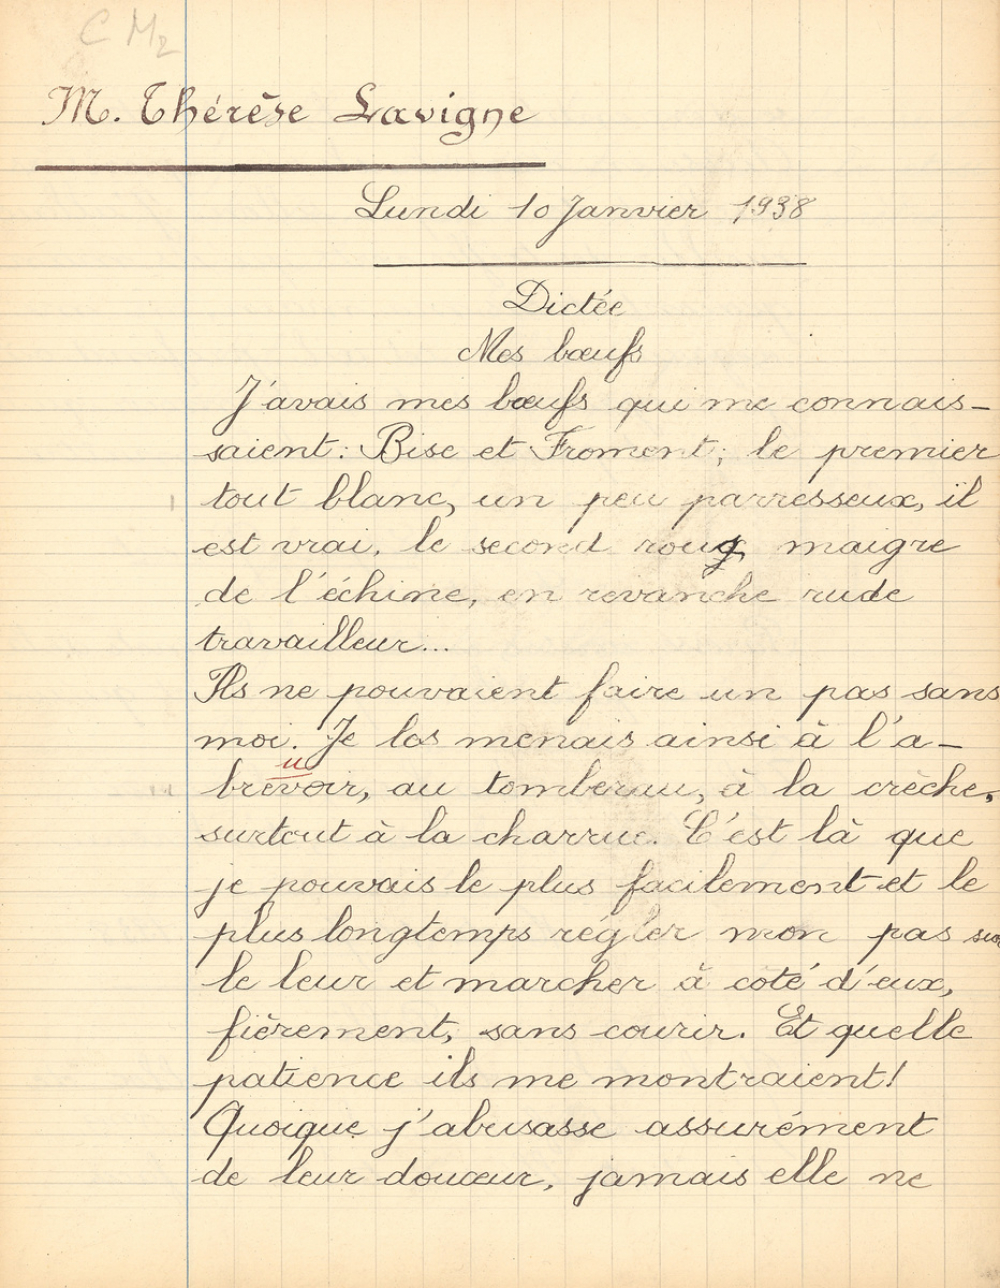 C M2
M. Thérèse Lavigne
Lundi 10 Janvier 1938
Dictée
Mes bœufs
J'avais mes bœufs qui me connais-
saient : Bise et Froment ; le premier
tout blanc, un peu parresseux, il
est vrai, le second roug maigre
de l'échine, en revanche rude
travailleur...
Ils ne pouvaient faire un pas sans
moi. Je les menais ainsi à l'a-
u
brevoir, au tombereau, à la crèche,
surtout à la charrue. C'est là que
je pouvais le plus facilement et le
plus longtemps régler mon pas sur
le leur et marcher à coté d'eux,
fièrement, sans courir. Et quelle
patience ils me montraient !
Quoique j'abusasse assurément
de leur douceur, jamais elle ne